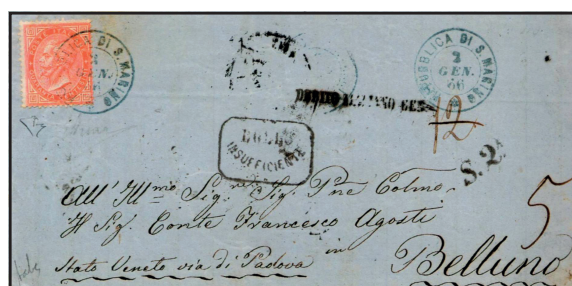 REPUBBLICA DI S. MARINO
2
GEN.
66
12
BOLLO
INSUFFICIENTE
S. 2ª
All' Ill.mo Sig.re Sig. Pne Colmo.
Il Sig. Conte Francesco Agosti
5
Stato Veneto via di Padova in Belluno